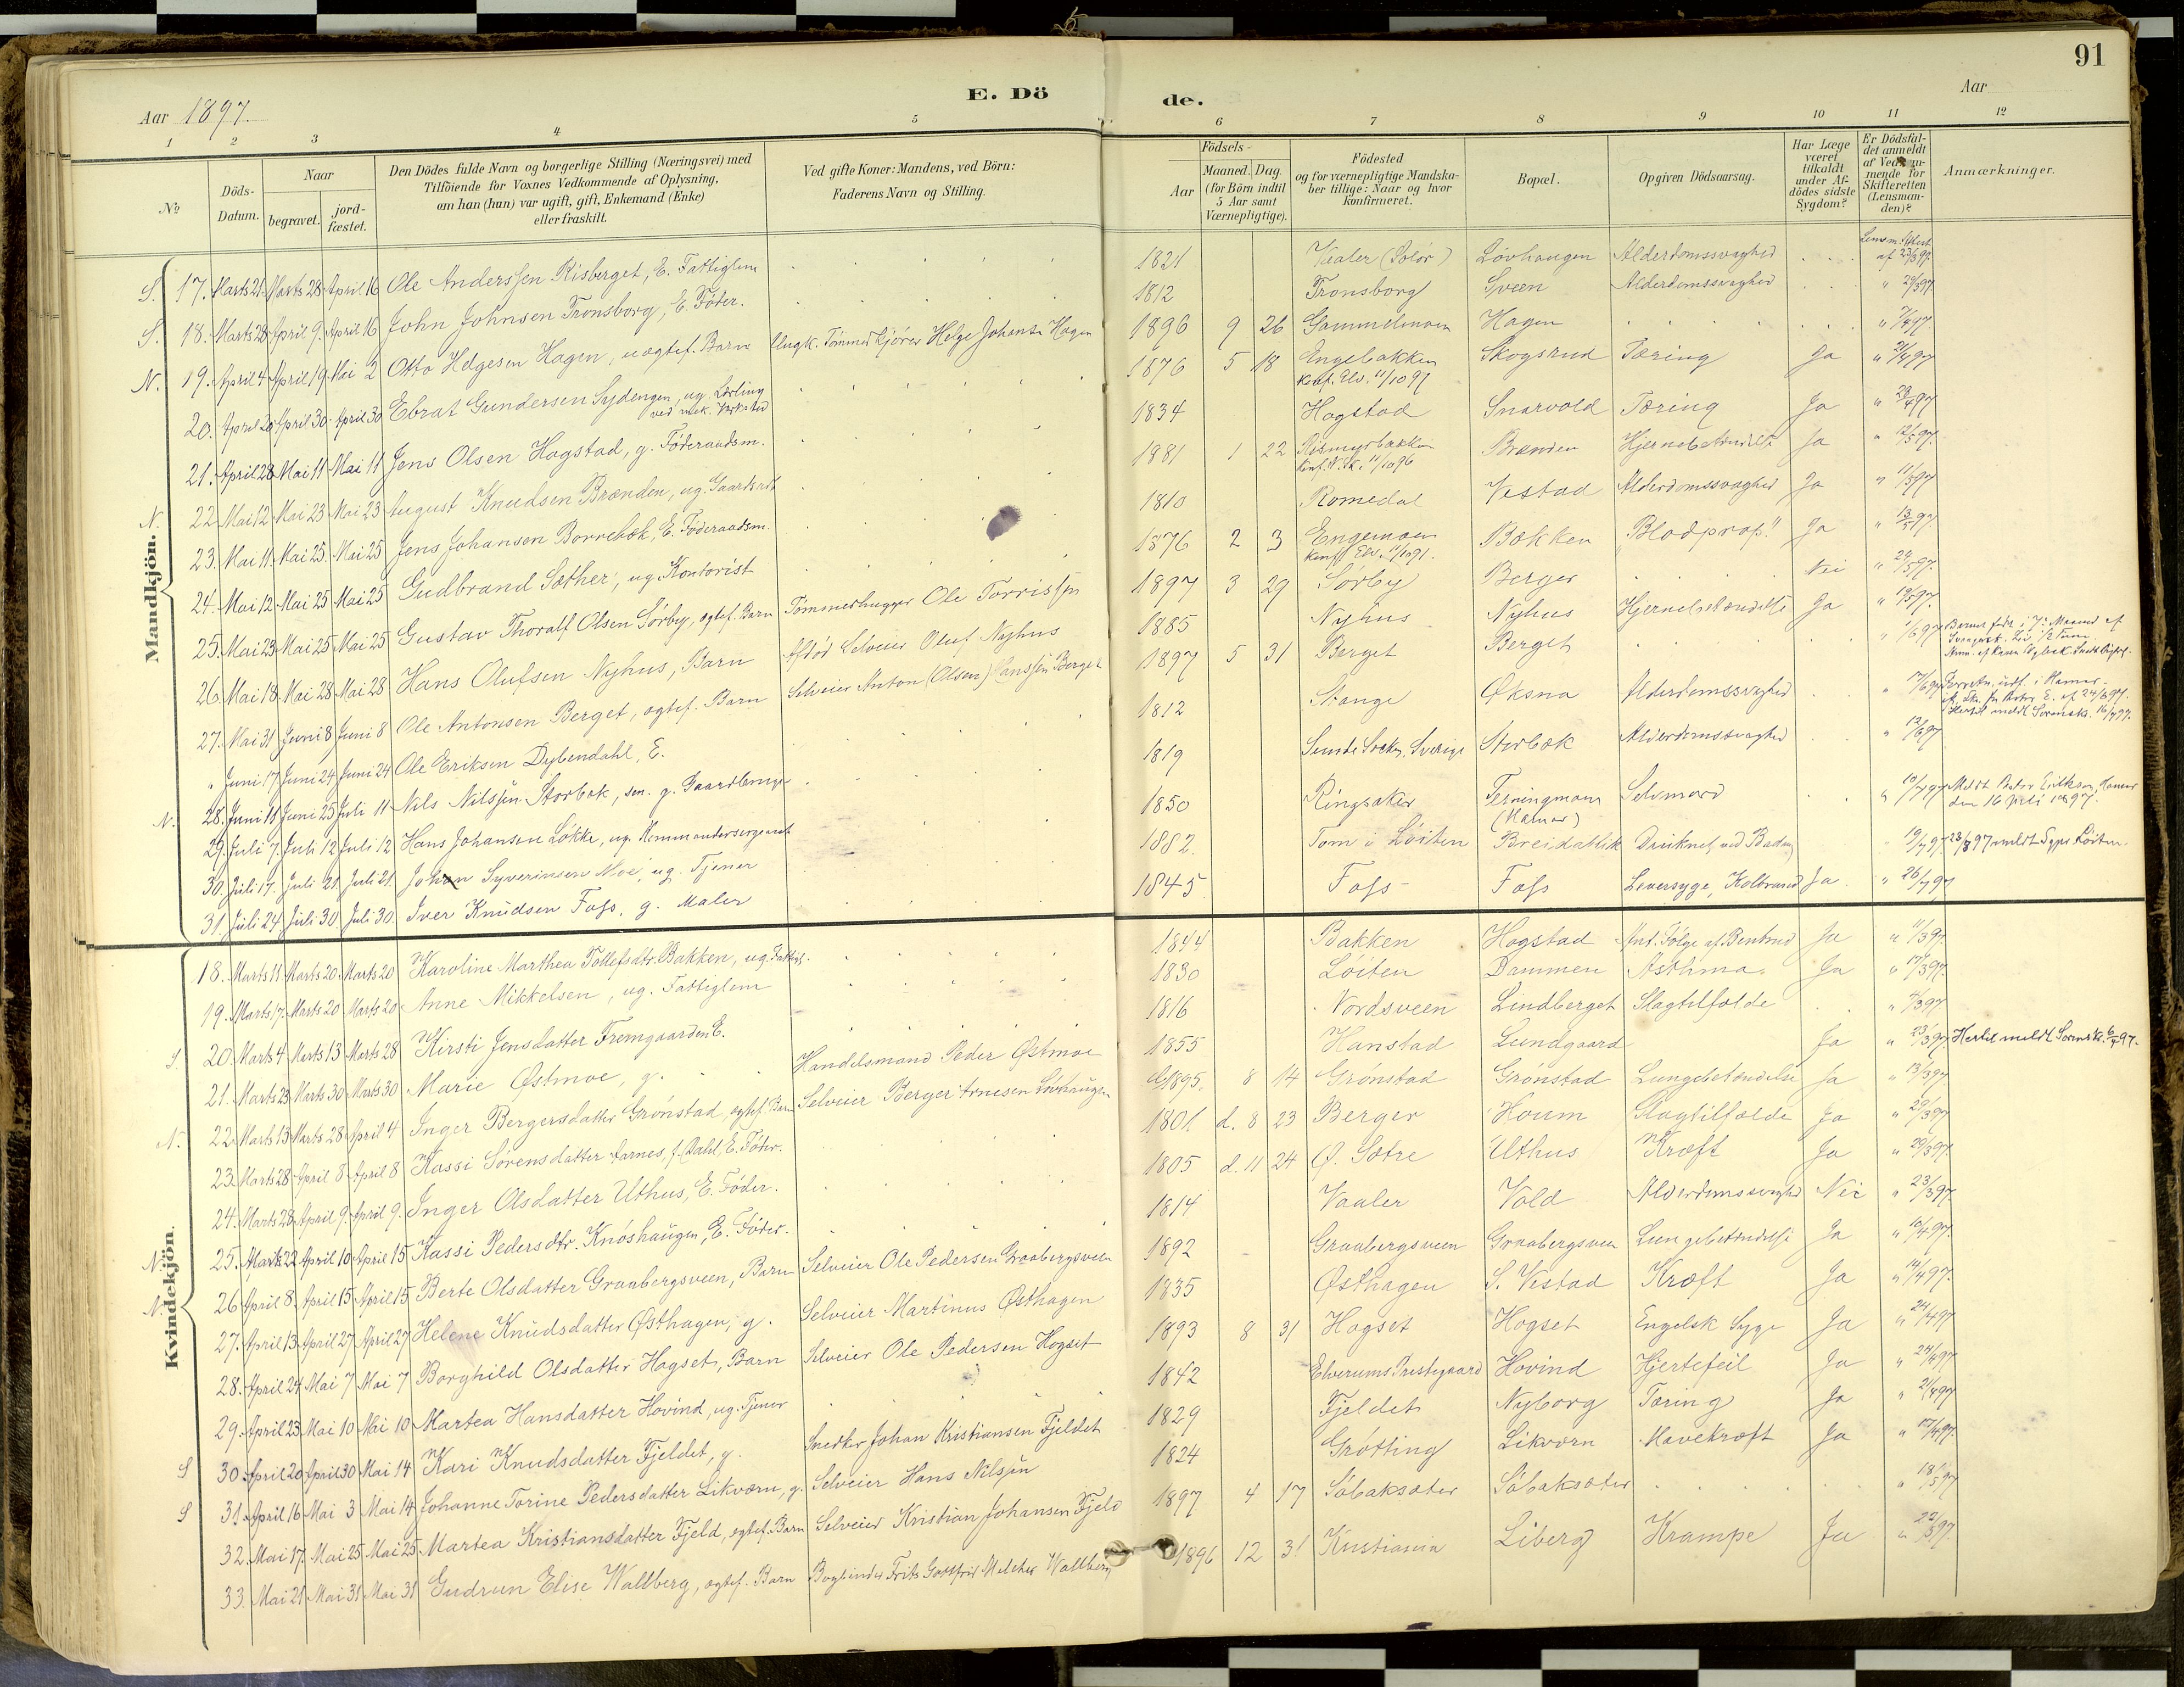 91
Aar 1897.
E. Döde.
Aar
1 2 3 4 5 6 7 8 9 10 11 12
No
Döds-Datum.
Naar
begravet.
jord-fæstet.
Den Dödes fulde Navn og borgerlige Stilling (Næringsvei) med
Tilföiende for Voxnes Vedkommende af Oplysning,
om han (hun) var ugift, gift, Enkemand (Enke)
eller fraskilt.
Ved gifte Koner: Mandens, ved Börn:
Faderens Navn og Stilling.
Födsels-
Aar
Maaned. Dag
(for Börn indtil
5 Aar samt
Værnepligtige).
Födested
og for værnepligtige Mandska-
ber tillige: Naar og hvor
konfirmeret.
Bopæl.
Opgiven Dödsaarsag.
Har Læge
været
tilkaldt
under Af-
dödes sidste
Sygdom?
Er Dödsfal-
det anmeldt
af Vedkom-
mende for
Skifteretten
(Lensman-
den)?
Anmærkninger.
Mandkjön.
S. 17. Marts 21. Marts 28 April 16 Ole Anderssen Risberget, E. Fattiglem 1821 Vaaler (Solör) Lövhaugen Alderdomssvaghed Lensm. Attest af 23/3 97.
S. 18. Marts 28 April 9. April 16 John Johnsen Tronsborg, E. Föder. 1812 Tronsborg Sveen Alderdomssvaghed " 29/3 97
N. 19. April 4 April 19. Mai 2 Otto Helgesen Hagen, uægtef. Barn Ungk. Tömmerkjörer Helge Johansen Hagen 1896 9 26 Gammelmoen Hagen " 7/4 97.
20. April 20 April 30. April 30 Ebrat Gundersen Sydengen, ug. Lærling ved mek. Værksted 1876 5 18 Engebakken Konf. Elv. 11/10 91 Skogsrud Tæring Ja " 21/4 97
21. April 28 Mai 11 Mai 11 Jens Olsen Hagstad, g. Föderaadsm. 1834 Hagstad Snarvold Tæring Ja " 29/4 97
N. 22 Mai 12 Mai 23 Mai 23 August Knudsen Brænden, ug. Gaardsarb 1881 1 22 Rismyrbakken Konf. N.K. 11/10 96 Brænden Hjernebetændelse Ja " 12/5 97.
23. Mai 11. Mai 25. Mai 25 Jens Johansen Borrebæk, E. Föderaadsm. 1810 Romedal Vestad Alderdomssvaghed Ja " 11/5 97
24. Mai 12 Mai 25 Mai 25 Gudbrand Sæther, ug. Kontorist 1876 2 3 Engemoen Konf. Elv. 11/10 91. Bækken "Blodprop." Ja " 13/5 97.
25. Mai 23 Mai 25 Mai 25 Gustav Thoralf Olsen Sörby, ægtef. Barn Tömmerhugger Ole Torrissen 1897 3 29 Sörby Berger Nei " 24/5 97.
26. Mai 18. Mai 28 Mai 28 Hans Olufsen Nyhus, Barn Afdöd Selveier Oluf Nyhus 1885 Nyhus Nyhus Hjernebetændelse Ja " 19/5 97.
27. Mai 31 Juni 8 Juni 8 Ole Antonsen Berget, ægtef. Barn Selveier Anton (Olsen) Hanssen Berget 1897 5 31 Berget Berget " 1/6 97 Barnet födt i 7. Maaned af
" Juni 17 Juni 24 Juni 24 Ole Eriksen Dybendahl, E. 1812 Stange Øksna Alderdomssvaghed " 17/6 97
N. 28. Juni 11 Juni 25 Juli 11 Nils Nilssen Storbæk, sen. g. Gaardbruger 1819 Sunde Sokn, Sverige Storbæk Alderdomssvaghed " 12/6 97
29. Juli 7. Juli 12 Juli 12 Hans Johansen Lökke, ug. Kommandersergeant 1850 Ringsaker Terningmoen (Hamar) Selvmord " 10/7 97 Meldt Pastor Erikson, Hamar den 16 Juli 1897.
30. Juli 17. Juli 21. Juli 21. Johan Syverinsen Moe, ug. Tjener 1882. Tom i Löiten Breidablik Druknet ved Badning 19/7 97. 23/7 97 meldt Sgpr. Löiten.
31. Juli 24 Juli 30. Juli 30. Iver Knudsen Foss, g. Maler 1845. Foss Foss Leversyge, Kolbrand Ja " 26/7 97
Kvindekjön.
18. Marts 11 Marts 20. Marts 20 Karoline Marthea Tollefsdtr. Bakken, ug. Fattigl. 1844 Bakken Hagstad Ant. Fölge af Benbrud Ja " 11/3 97.
19. Marts 17. Marts 20 Marts 20 Anne Mikkelsen, ug. Fattiglem 1830 Löiten Dammen Asthma. Ja " 17/3 97.
S. 20. Marts 4 Marts 13 Marts 28 Kirsti Jensdatter Fremgaarden E. 1816 Nordsveen Lindberget Slagtilfælde " 5/3 97
21. Marts 23 Marts 30 Marts 30 Marie Østmoe, g. Handelsmand Peder Østmoe 1855 Hanstad Lundgaard Ja " 23/3 97. Hertil meldt Sorensk. 6/4 97.
N. 22. Marts 13 Marts 28. April 4 Inger Bergersdatter Grönstad, ægtef. Barn Selveier Berger Arnesen Lövhaugen 1895. 8 14 Grönstad Grönstad Lungebetændelse Ja " 13/3 97.
23. Marts 28 April 8 April 8 Kassi Sörensdatter Aarnes, f. Dahl, E. Föder. 1801. d. 8 23 Berger Houm Slagtilfælde Ja " 29/3 97
24. Marts 28 April 9. April 9. Inger Olsdatter Uthus, E. Föder. 1805 d. 11 24 Ø. Sætre Uthus Kræft Ja " 29/3 97.
N. 25. Marts 22 April 10 April 15 Kassi Pedersdtr. Knöshaugen, E. Föder. 1814 Vaaler Vold Alderdomssvaghed Nei " 23/3 97.
N. 26 April 8. April 15 April 15 Berte Olsdatter Graabergsveen, Barn Selveier Ole Pedersen Graabergsveen 1892 Graabergsveen Graabergsveen Lungebetændelse Ja " 10/4 97.
27. April 13 April 27 April 27 Helene Knudsdatter Østhagen, g. Selveier Martinus Østhagen 1835 Østhagen S. Vestad Kræft Ja " 14/4 97.
28. April 24 Mai 7 Mai 7 Borghild Olsdatter Hagset, Barn Selveier Ole Pedersen Hagset 1893 8 31 Hagset Hagset Engelsk Syge Ja " 24/4 97
29. April 23 Mai 10 Mai 10 Martea Hansdatter Hovind, ug. Tjener 1842 Elverums Prestegaard Hovind Hjertefeil Ja " 24/4 97
S 30. April 20 April 30 Mai 14 Kari Knudsdatter Fjeldet, g. Snedker Johan Kristiansen Fjeldet 1829 Fjeldet Nyborg Tæring Ja " 21/4 97
S 31. April 16 Mai 3 Mai 14 Johanne Torine Pedersdatter Likværn, g. Selveier Hans Nilssen 1824 Grötting Likværn Mavekræft Ja " 17/4 97.
32. Mai 17. Mai 25 Mai 25 Martea Kristiansdatter Fjeld, ægtef. Barn Selveier Kristian Johansen Fjeld 1897 4 17 Såbaksæter Såbaksæter " 18/5 97
33. Mai 21 Mai 31 Mai 31 Gudrun Elise Wallberg, ægtef. Barn Bogbinder Frits Gottfrid Melcher Wallberg 1896 12 31 Kristiania Liberg Krampe Ja " 22/5 97.